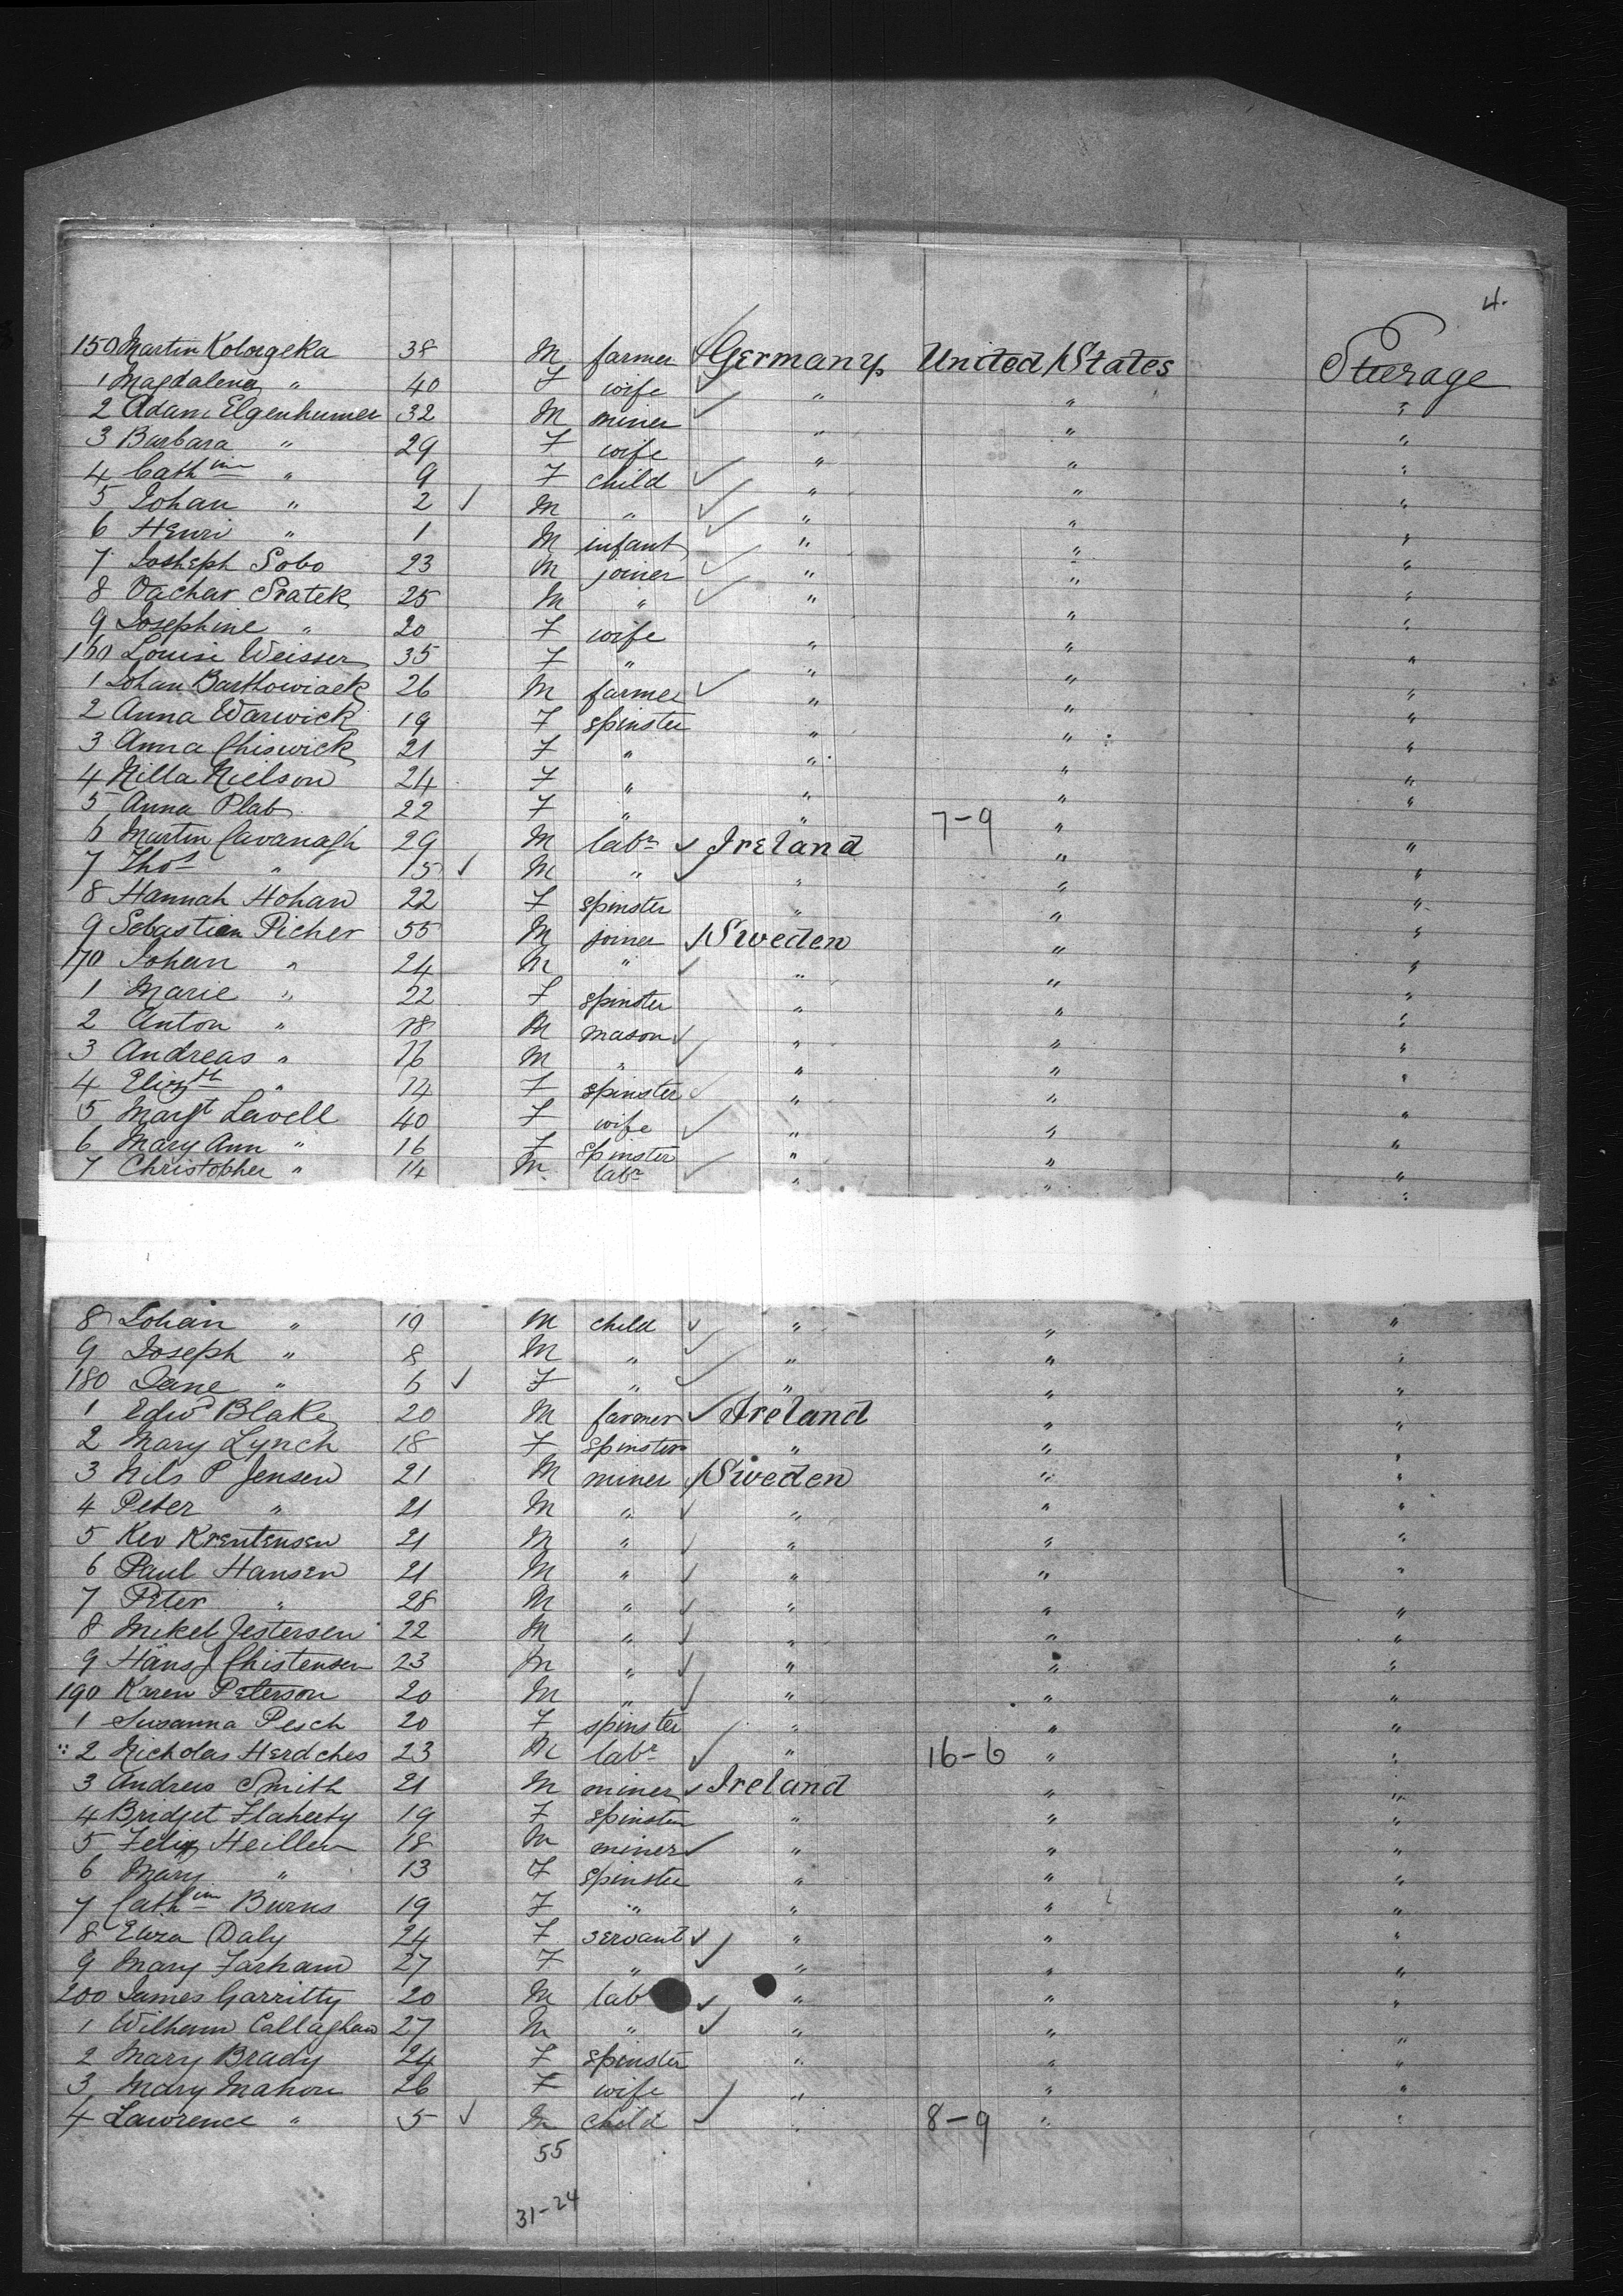 4.
150 Martin Kolorgeka 38 M farmer Germany United States Steerage
1 Magdalena " 40 F wife " " "
2 Adam Elgenhumer 32 M miner " " "
3 Barbara " 29 F wife " " "
4 Cathine " 9 F child " " "
5 Johan " 2 ✓ M " " " "
6 Henri " 1 M infant " " "
7 Josheph Sobo 23 M joiner " " "
8 Vachar Sratek 25 M " " " "
9 Josephine " 20 F wife " " "
160 Louise Weisser 35 F " " " "
1 Johan Barthowiack 26 M farmer " " "
2 Anna Warwick 19 F spinster " " "
3 Anna Chiswick 21 F " " " "
4 Nilla Nielson 24 F " " " "
5 Anna Plab 22 F " " 7-9 " "
6 Martin Cavanagh 29 M labr Ireland " "
7 Thos " 15 ✓ M " " " "
8 Hannah Hohan 22 F spinster " " "
9 Sebastian Picher 55 M joiner Sweden " "
170 Johan " 24 M " " " "
1 Marie " 22 F spinster " " "
2 Anton " 18 M mason " " "
3 Andreas " 16 M " " " "
4 Elizth " 14 F spinster " " "
5 Margt Lavell 40 F wife " " "
6 Mary Ann " 16 F spinster " " "
7 Christopher " 14 M labr " " "
8 Johan " 10 M child " " "
9 Joseph " 8 M " " " "
180 Jane " 6 ✓ F " " " "
1 Edwd Blake 20 M farmer Ireland " "
2 Mary Lynch 18 F spinster " " "
3 Nils P Jensen 21 M miner Sweden " "
4 Peter " 21 M " " " "
5 Kev Krentensen 21 M " " " "
6 Paul Hansen 21 M " " " "
7 Peter " 28 M " " " "
8 Mikel Jestersen 22 M " " " "
9 Hans J Chistensen 23 M " " " "
190 Karen Peterson 20 M " " " "
1 Susanna Pesch 20 F spinster " " "
2 Nicholas Herdches 23 M labr " 16-6 " "
3 Andrew Smith 21 M miner Ireland " "
4 Bridget Flaherty 19 F spinster " " "
5 Felix Heillen 18 M miner " " "
6 Mary " 13 F spinster " " "
7 Cathine Burns 19 F " " " "
8 Eliza Daly 24 F servant " " "
9 Mary Farham 27 F " " " "
200 James Garritty 20 M lab " " "
1 William Callaghan 27 M " " " "
2 Mary Brady 24 F spinster " " "
3 Mary Mahon 26 F wife " " "
4 Lawrence " 5 ✓ M child " 8-9 " "
55
31-24